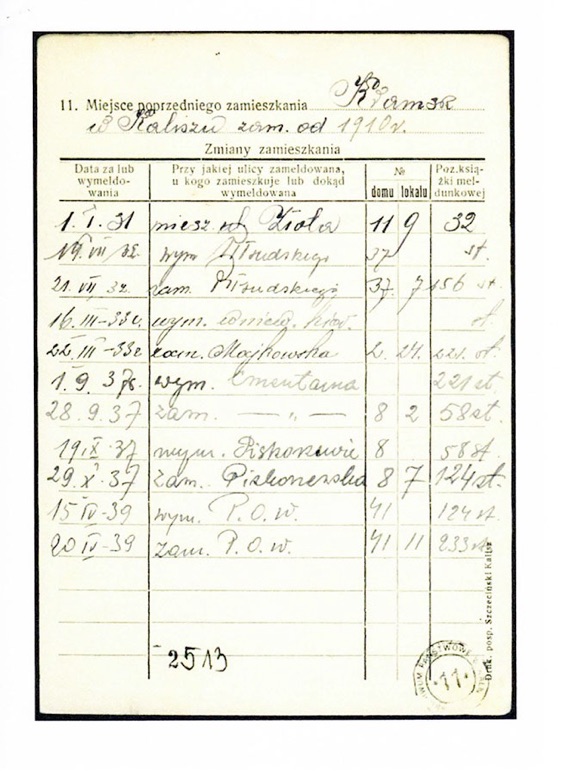 11. Miejsce poprzedniego zamieszkania Kramsk
w Kaliszu zam. od 1910 r.
Zmiany zamieszkania
Data za lub wymeldo-wania Przy jakiej ulicy zameldowana, u kogo zamieszkuje lub dokąd wymeldowana № domu lokalu Poz. książki mel-dunkowej
1. I. 31 miesz. Zioła 11 9 32
19. VII 32. wym Piłsudskiego 37 st.
21. VII, 32. zam. Piłsudskiego 37. 7 156 st.
16. III-33 wym. st.
22. III-33r zam. Majkowska 2. 24. 221. st.
1. 9. 37r. wym. Cmentarna 221 st
28. 9. 37 zam. — „ — 8 2 58 st.
19. X. 37 wym. 8 58 st.
29. X. 37 zam. Piskorzewska 8 7 124 st.
15 IV-39 wym. P. O. W. 41 124 st.
20 IV-39 zam. P. O. W. 41 11 233 st
2513
Druk. posp. Szczeciński Kalisz
11